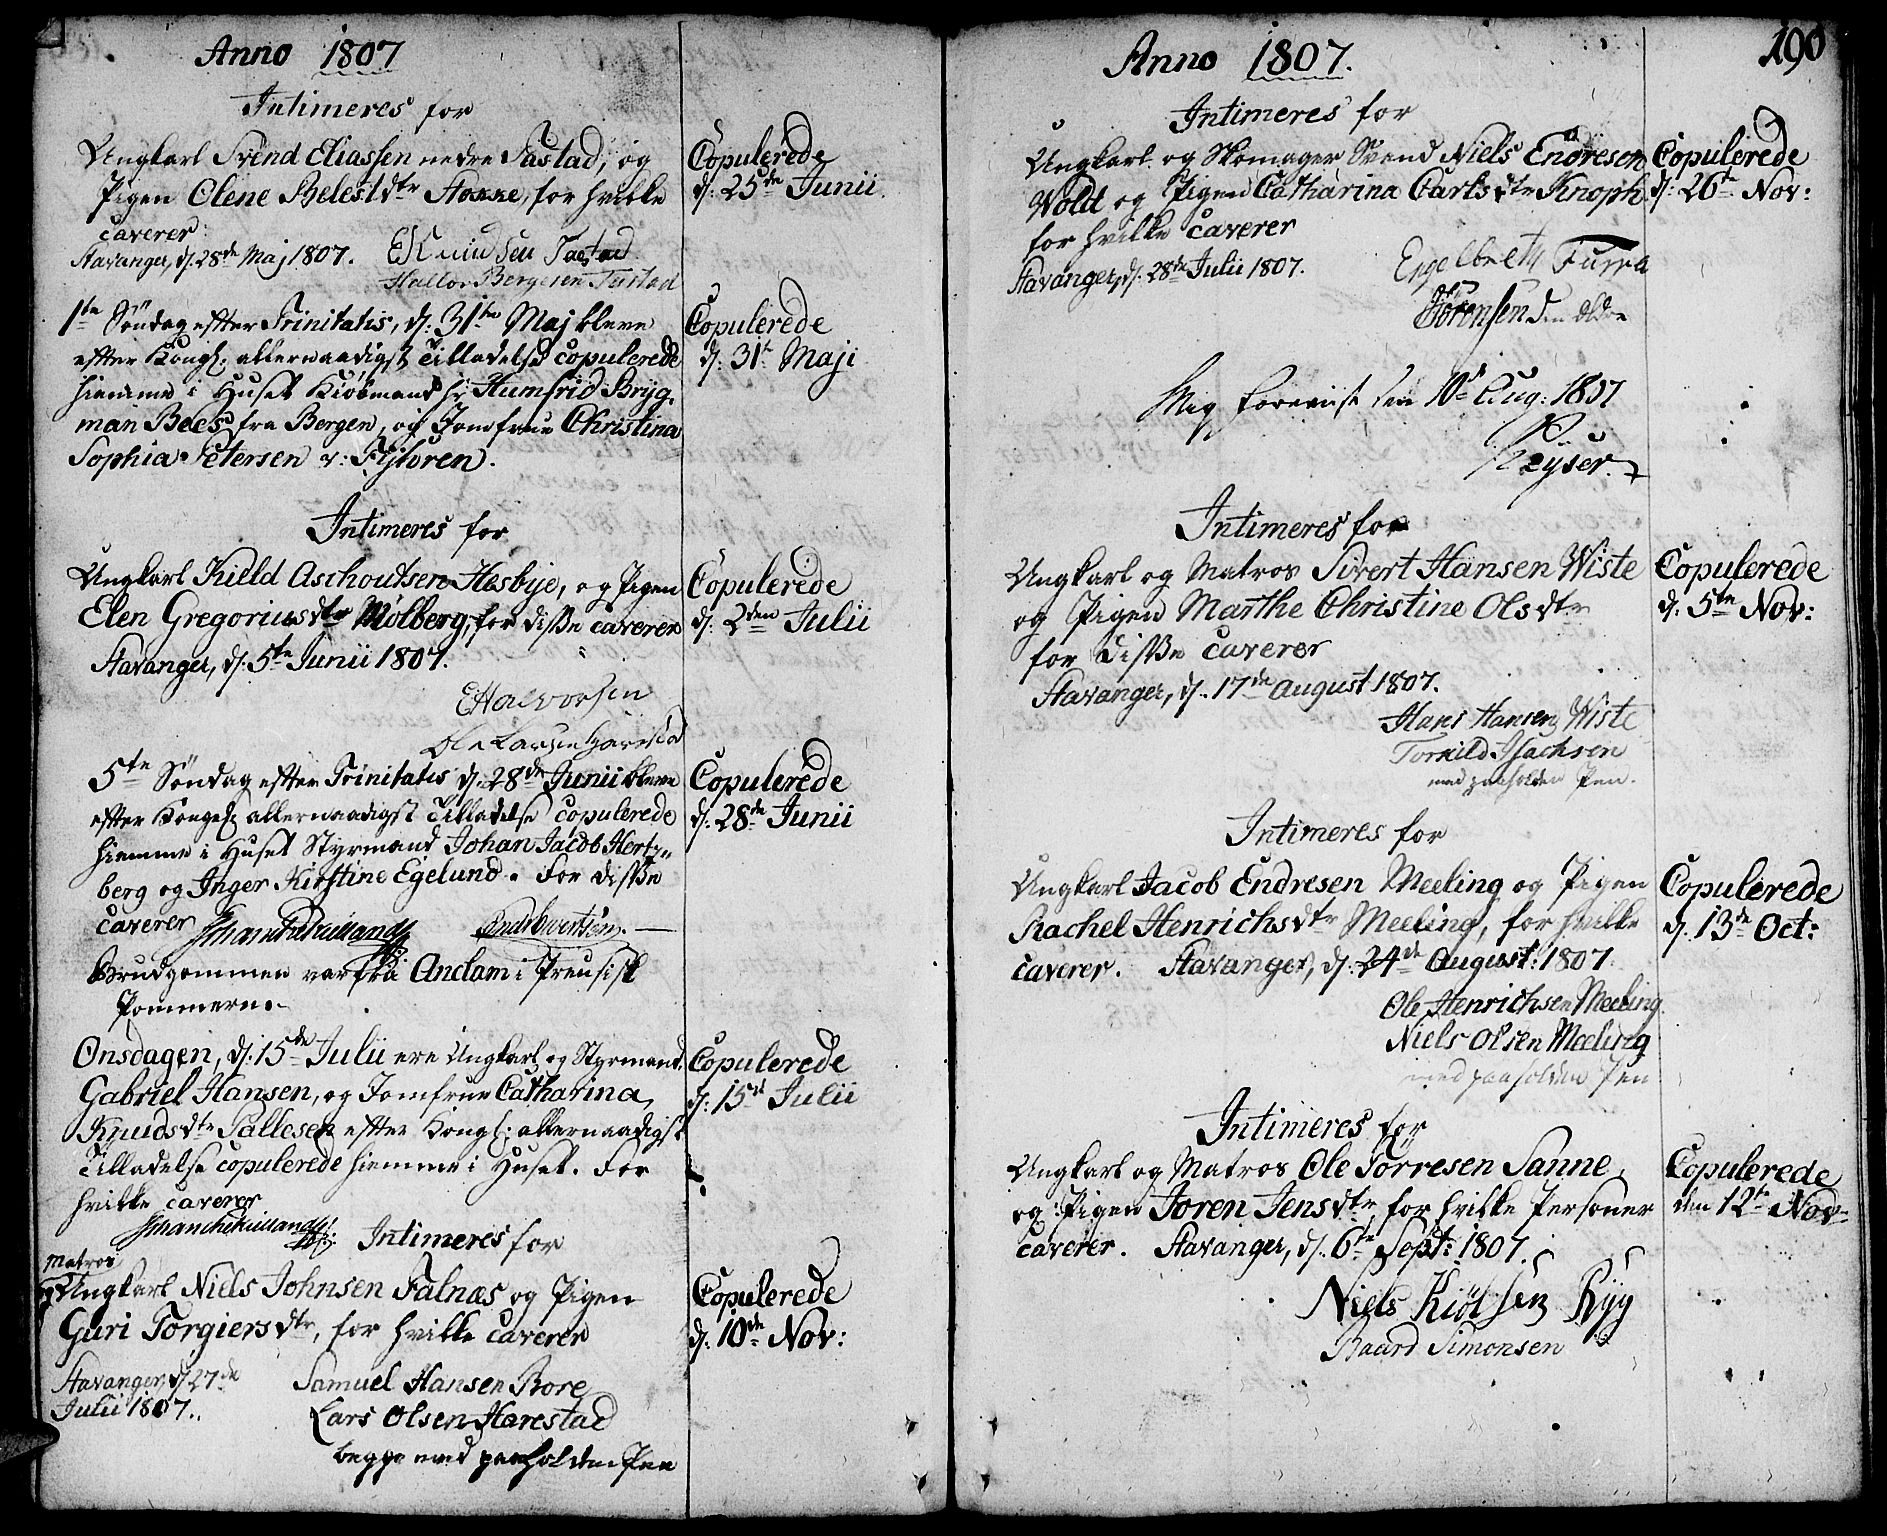 Anno 1807
Intimeres for
Ungkarl Svend Eliassen nedre Tastad, og
Pigen Olene Belestdtr Stokke, for hvilke
caverer
Stavanger, d: 28de Maj 1807. Tastad
Halvor Bergesen Tastad
Copulerede
d: 25de Junii
1ste Søndag efter Trinitatis, d: 31te Maj bleve
efter Kongl: allernaadigst Tilladelse copulerede
hiemme i Huset Kiøbmand hr: Humfrid Bryg-
man Bees fra Bergen, og Jomfrue Christina
Sophia Petersen v: Fijtoren.
Copulerede
d: 31te Maji
Intimeres for
Ungkarl Kield Aschoutsen Hesbye, og Pigen
Elen Gregoriusdtr Molberg, for disse caverer
Stavanger, d: 5te Junii 1807.
EHalvorsen
Ole Larsen Harestad
Copulerede
d: 2den Julii
5te Søndag efter Trinitatis d: 28de Junii bleve
efter Kongel: allernaadigst Tilladelse copulerede
hiemme i Huset Styrmand Johan Jacob Hertz-
berg og Inger Kirstine Egelund. For disse
caverer
Brudgommen var fra Anclam i Preusisk
Pommern.
Copulerede
d: 28de Junii
Onsdagen, d: 15de Julii ere Ungkarl og Styrmand
Gabriel Hansen, og Jomfrue Catharina
Knudsdtr Sallesen efter Kongl: allernaadigst
Tilladelse copulerede hiemme i Huset. For
hvilke caverer
Copulerede
d: 15de Julii
Intimeres for
Matros
Ungkarl Niels Johnsen Falnæs og Pigen
Guri Torgiersdtr, for hvilke caverer
Stavanger, d: 27de
Julii 1807.
Samuel Hansen Bore
Lars Olsen Harestad
begge med paaholden Pen
Copulerede
d: 10de Nov:
Anno 1807.
190
Intimeres for
Ungkarl og Skomager Svend Niels Endresen
Wold og Pigen Catharina Carlsdtr Knoph
for hvilke caverer
Stavanger, d: 28de Julii 1807.
Engelbreth Furra
Sörensen den ældre
Mig foreviist den 10de Aug: 1807
Keyser
Copulerede
d: 26te Nov:
Intimeres for
Ungkarl og Matros Sivert Hansen Wiste
og Pigen Marthe Christine Olsdtr
for disse caverer
Stavanger, d: 17de August 1807.
Hans Hansen Wiste
Torkild Isachsen
med paaholden Pen.
Copulerede
d: 5te Nov:
Intimeres for
Ungkarl Jacob Endresen Meeling og Pigen
Rachel Henrichsdtr Meeling, for hvilke
caverer. Stavanger, d: 24de August: 1807.
Ole Henrichsen Meeling
Niels Olsen Meeling
med paaholden Pen
Copulerede
d. 13de Oct:
Intimeres for
Ungkarl og Matros Ole Torresen Sanne,
og Pigen Joren Jensdtr, for hvilke Personer
caverer. Stavanger, d: 6te Sept: 1807.
Niels Kiølsen Ryg
Baard Simonsen
Copulerede
den 12te Nov: